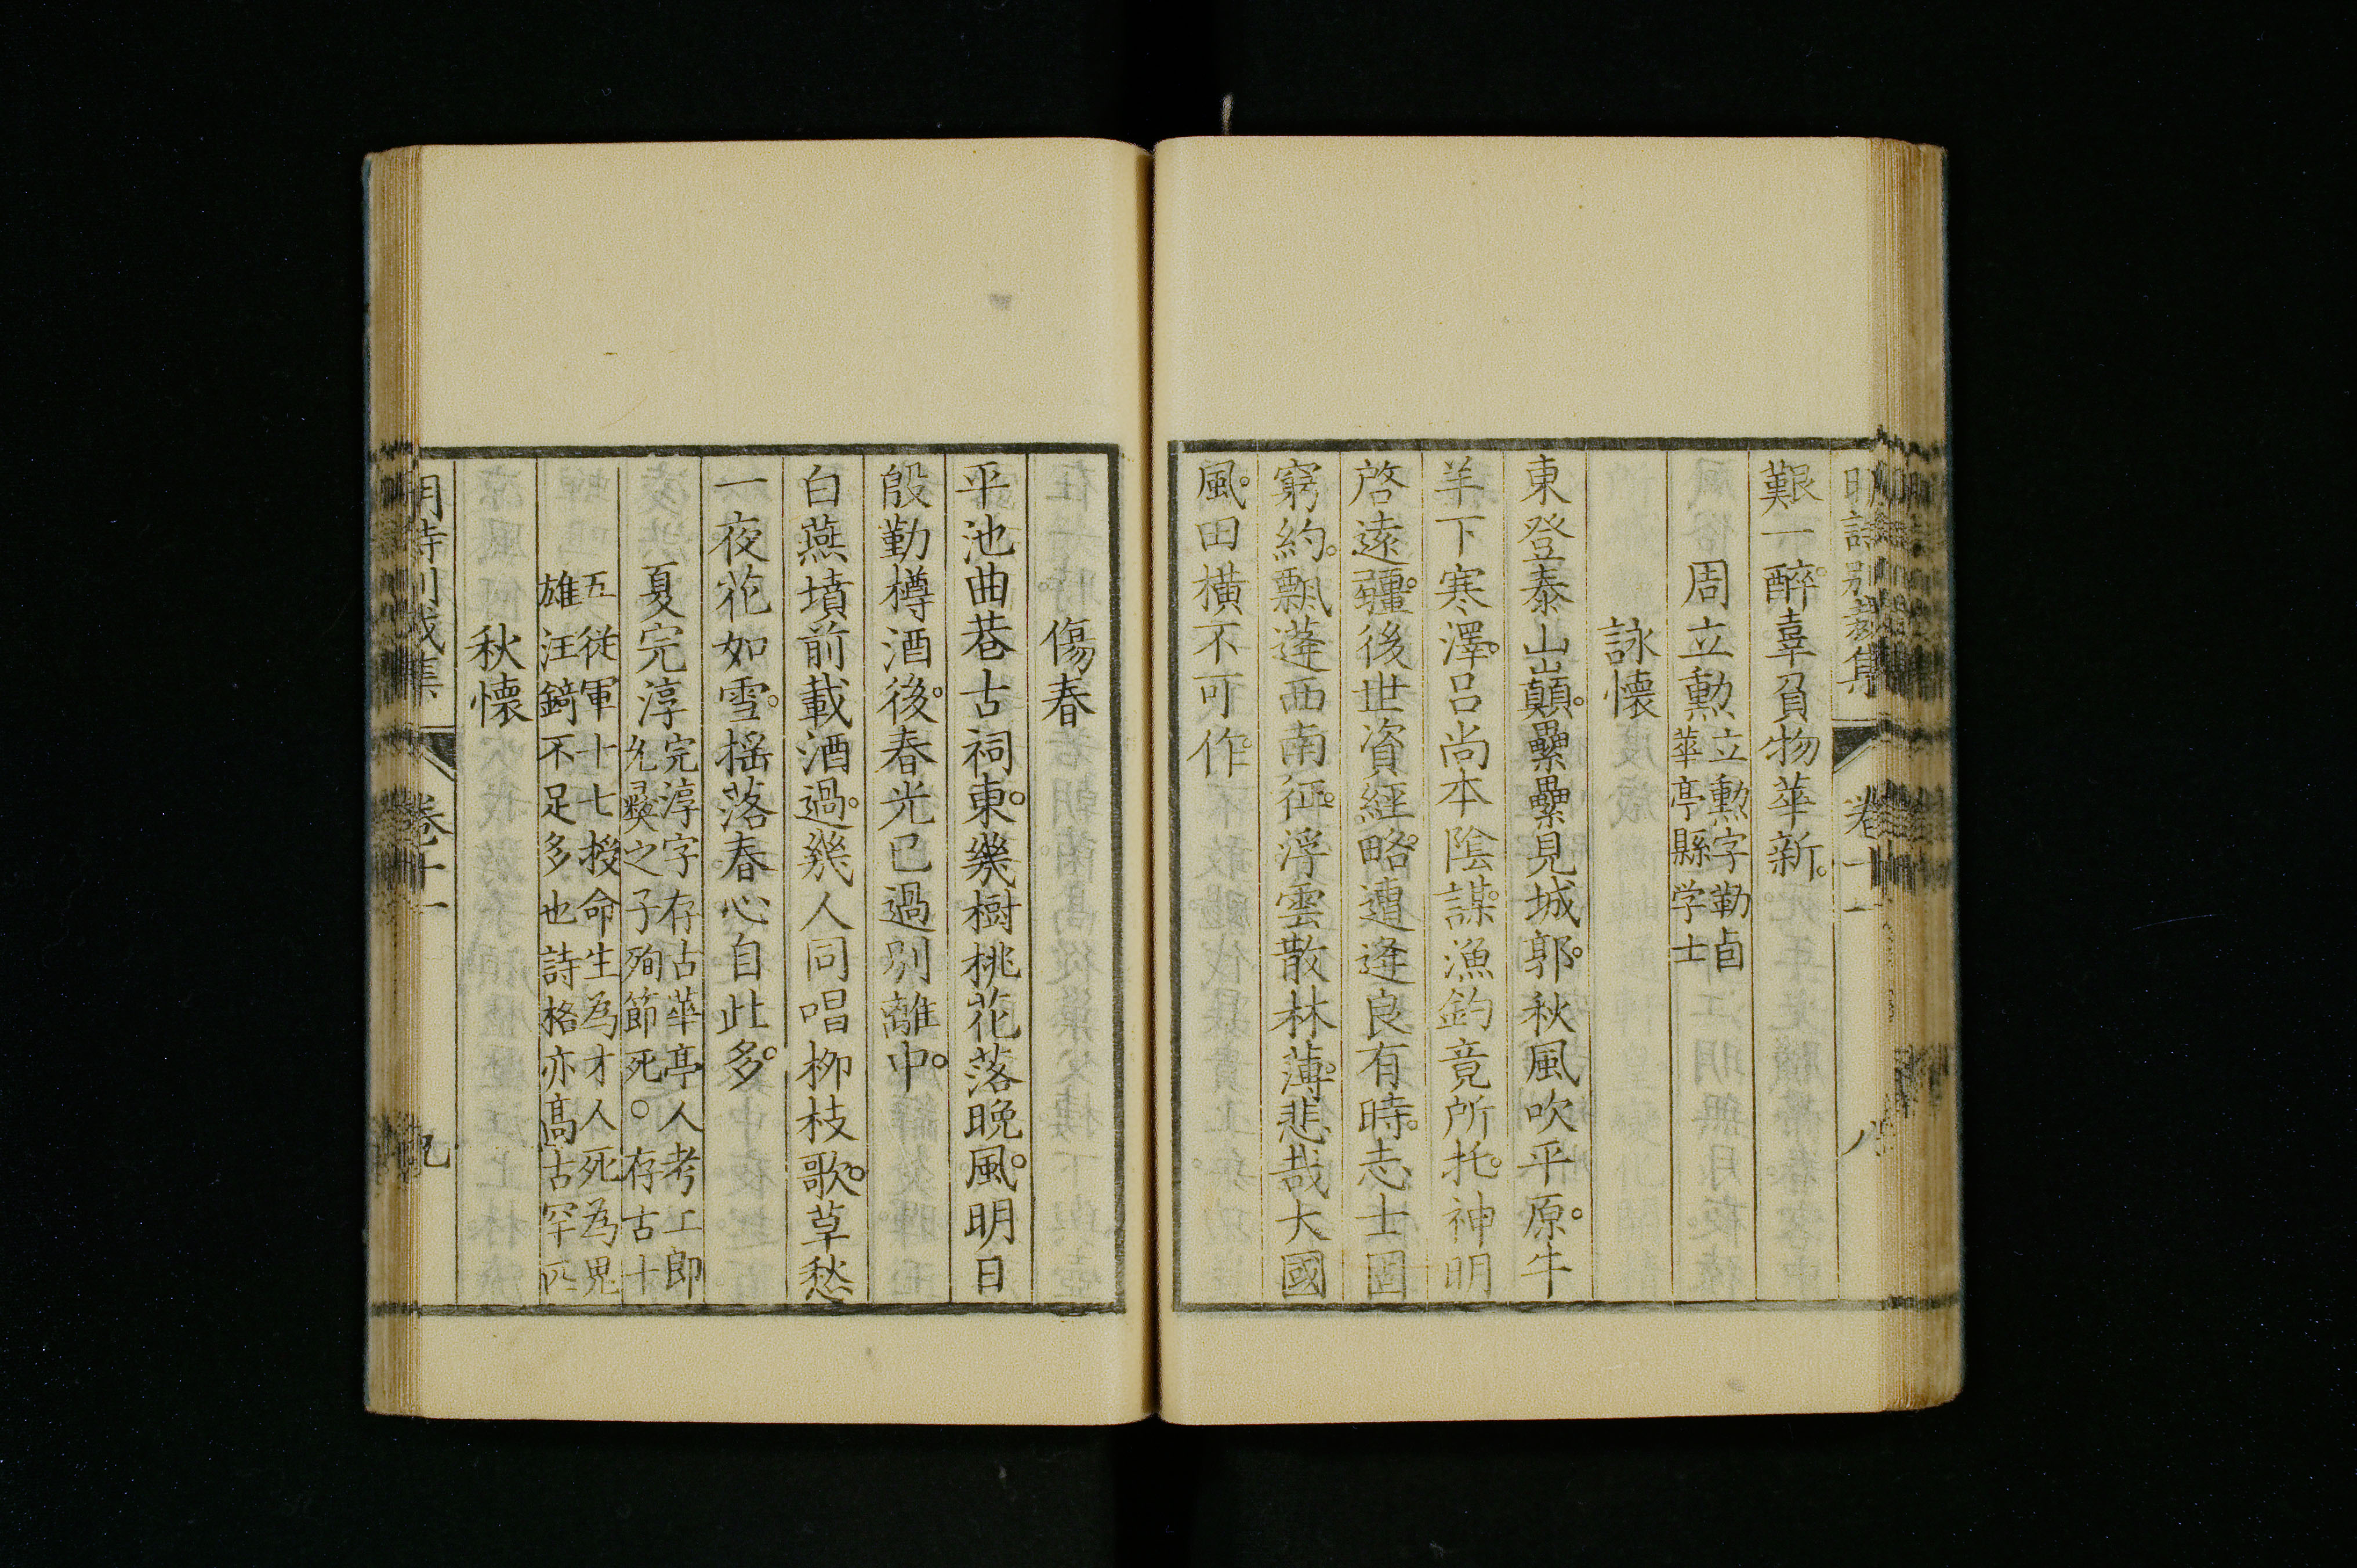 明詩別裁集 卷十一 八
艱一醉。辜負物華新。
周立勳 立勲字勒卣
華亭縣学士
詠懷
東登泰山巔。纍纍見城郭。秋風吹平原。牛
羊下寒澤。呂尚本陰謀。漁釣竟所托。神明
啓遠疆。後世資經略。遭逢良有時。志士固
窮約。飄蓬西南征。浮雲散林薄。悲哉大國
風。田橫不可作。
傷春
平池曲巷古祠東。幾樹桃花落晚風。明日
殷勤樽酒後。春光已過別離中。
白燕墳前載酒過。幾人同唱柳枝歌。草愁
一夜花如雪。搖落春心自此多。
夏完淳 完淳字存古華亭人考工郎
允彝之子殉節死。存古十
五従軍十七授命生為才人死為鬼
雄汪錡不足多也詩格亦高古罕匹
秋懷
明詩別裁集 卷十一